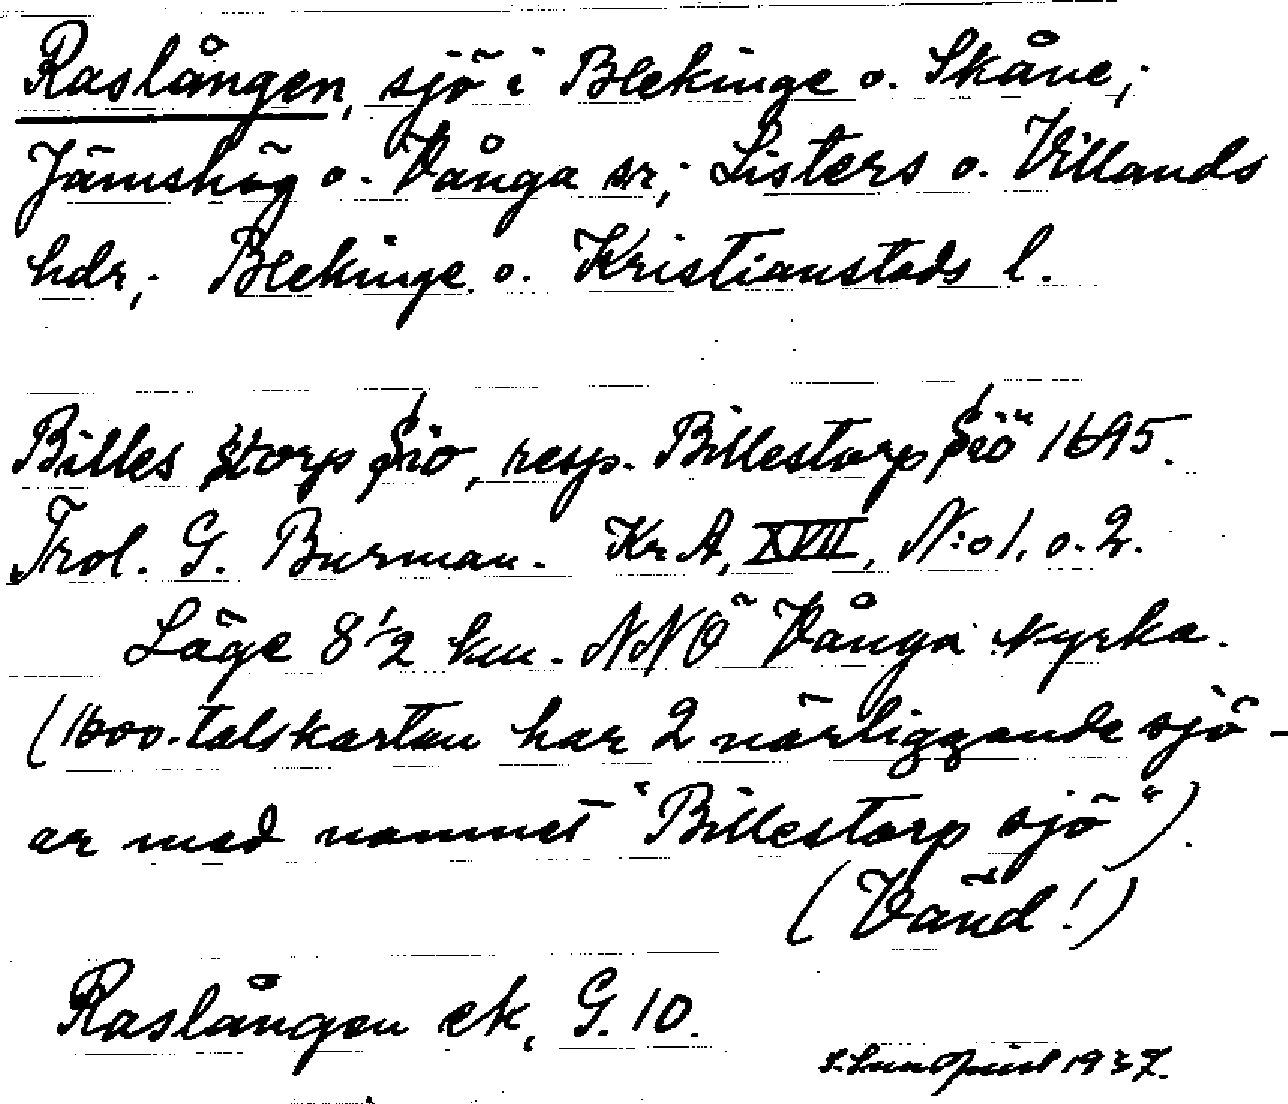 Raslången, sjö i Blekinge o. Skåne;
Jämshög o. Vånga snr; Listers o. Villands
hdr; Blekinge o. Kristianstads l.
Billes Storp Siö, resp. Billestorp Siö 1695.
Trol. G. Burman. Kr. A, XVII, N:o 1. o. 2.
Läge 8 1/2 km. NNÖ Vånga kyrka.
(1600-talskartan har 2 närliggande sjö-
ar med namnet "Billestorp sjö").
(Vänd!)
Raslången ek, G. 10.
1937.